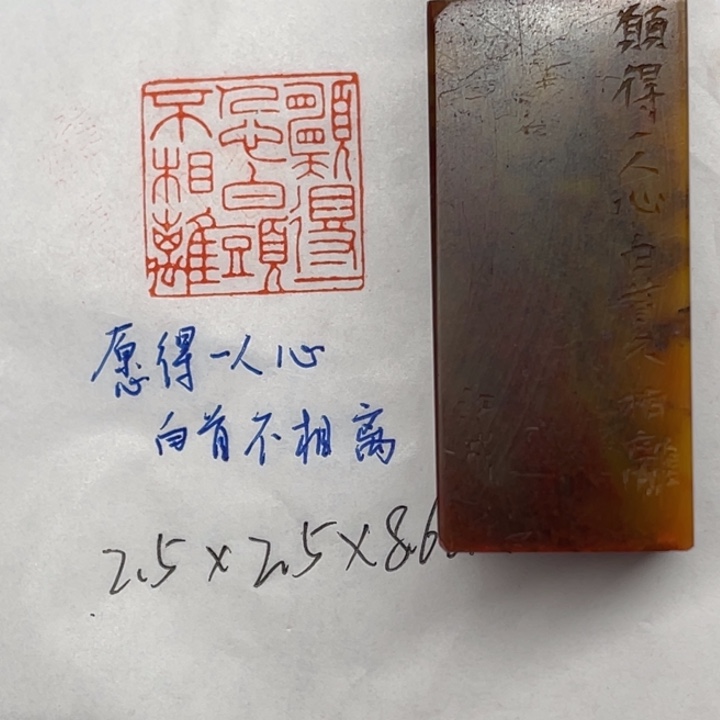 願得一
人心白頭
不相離
愿得一人心
白首不相离
2.5×2.5×8.6
願得一人心白首不相離